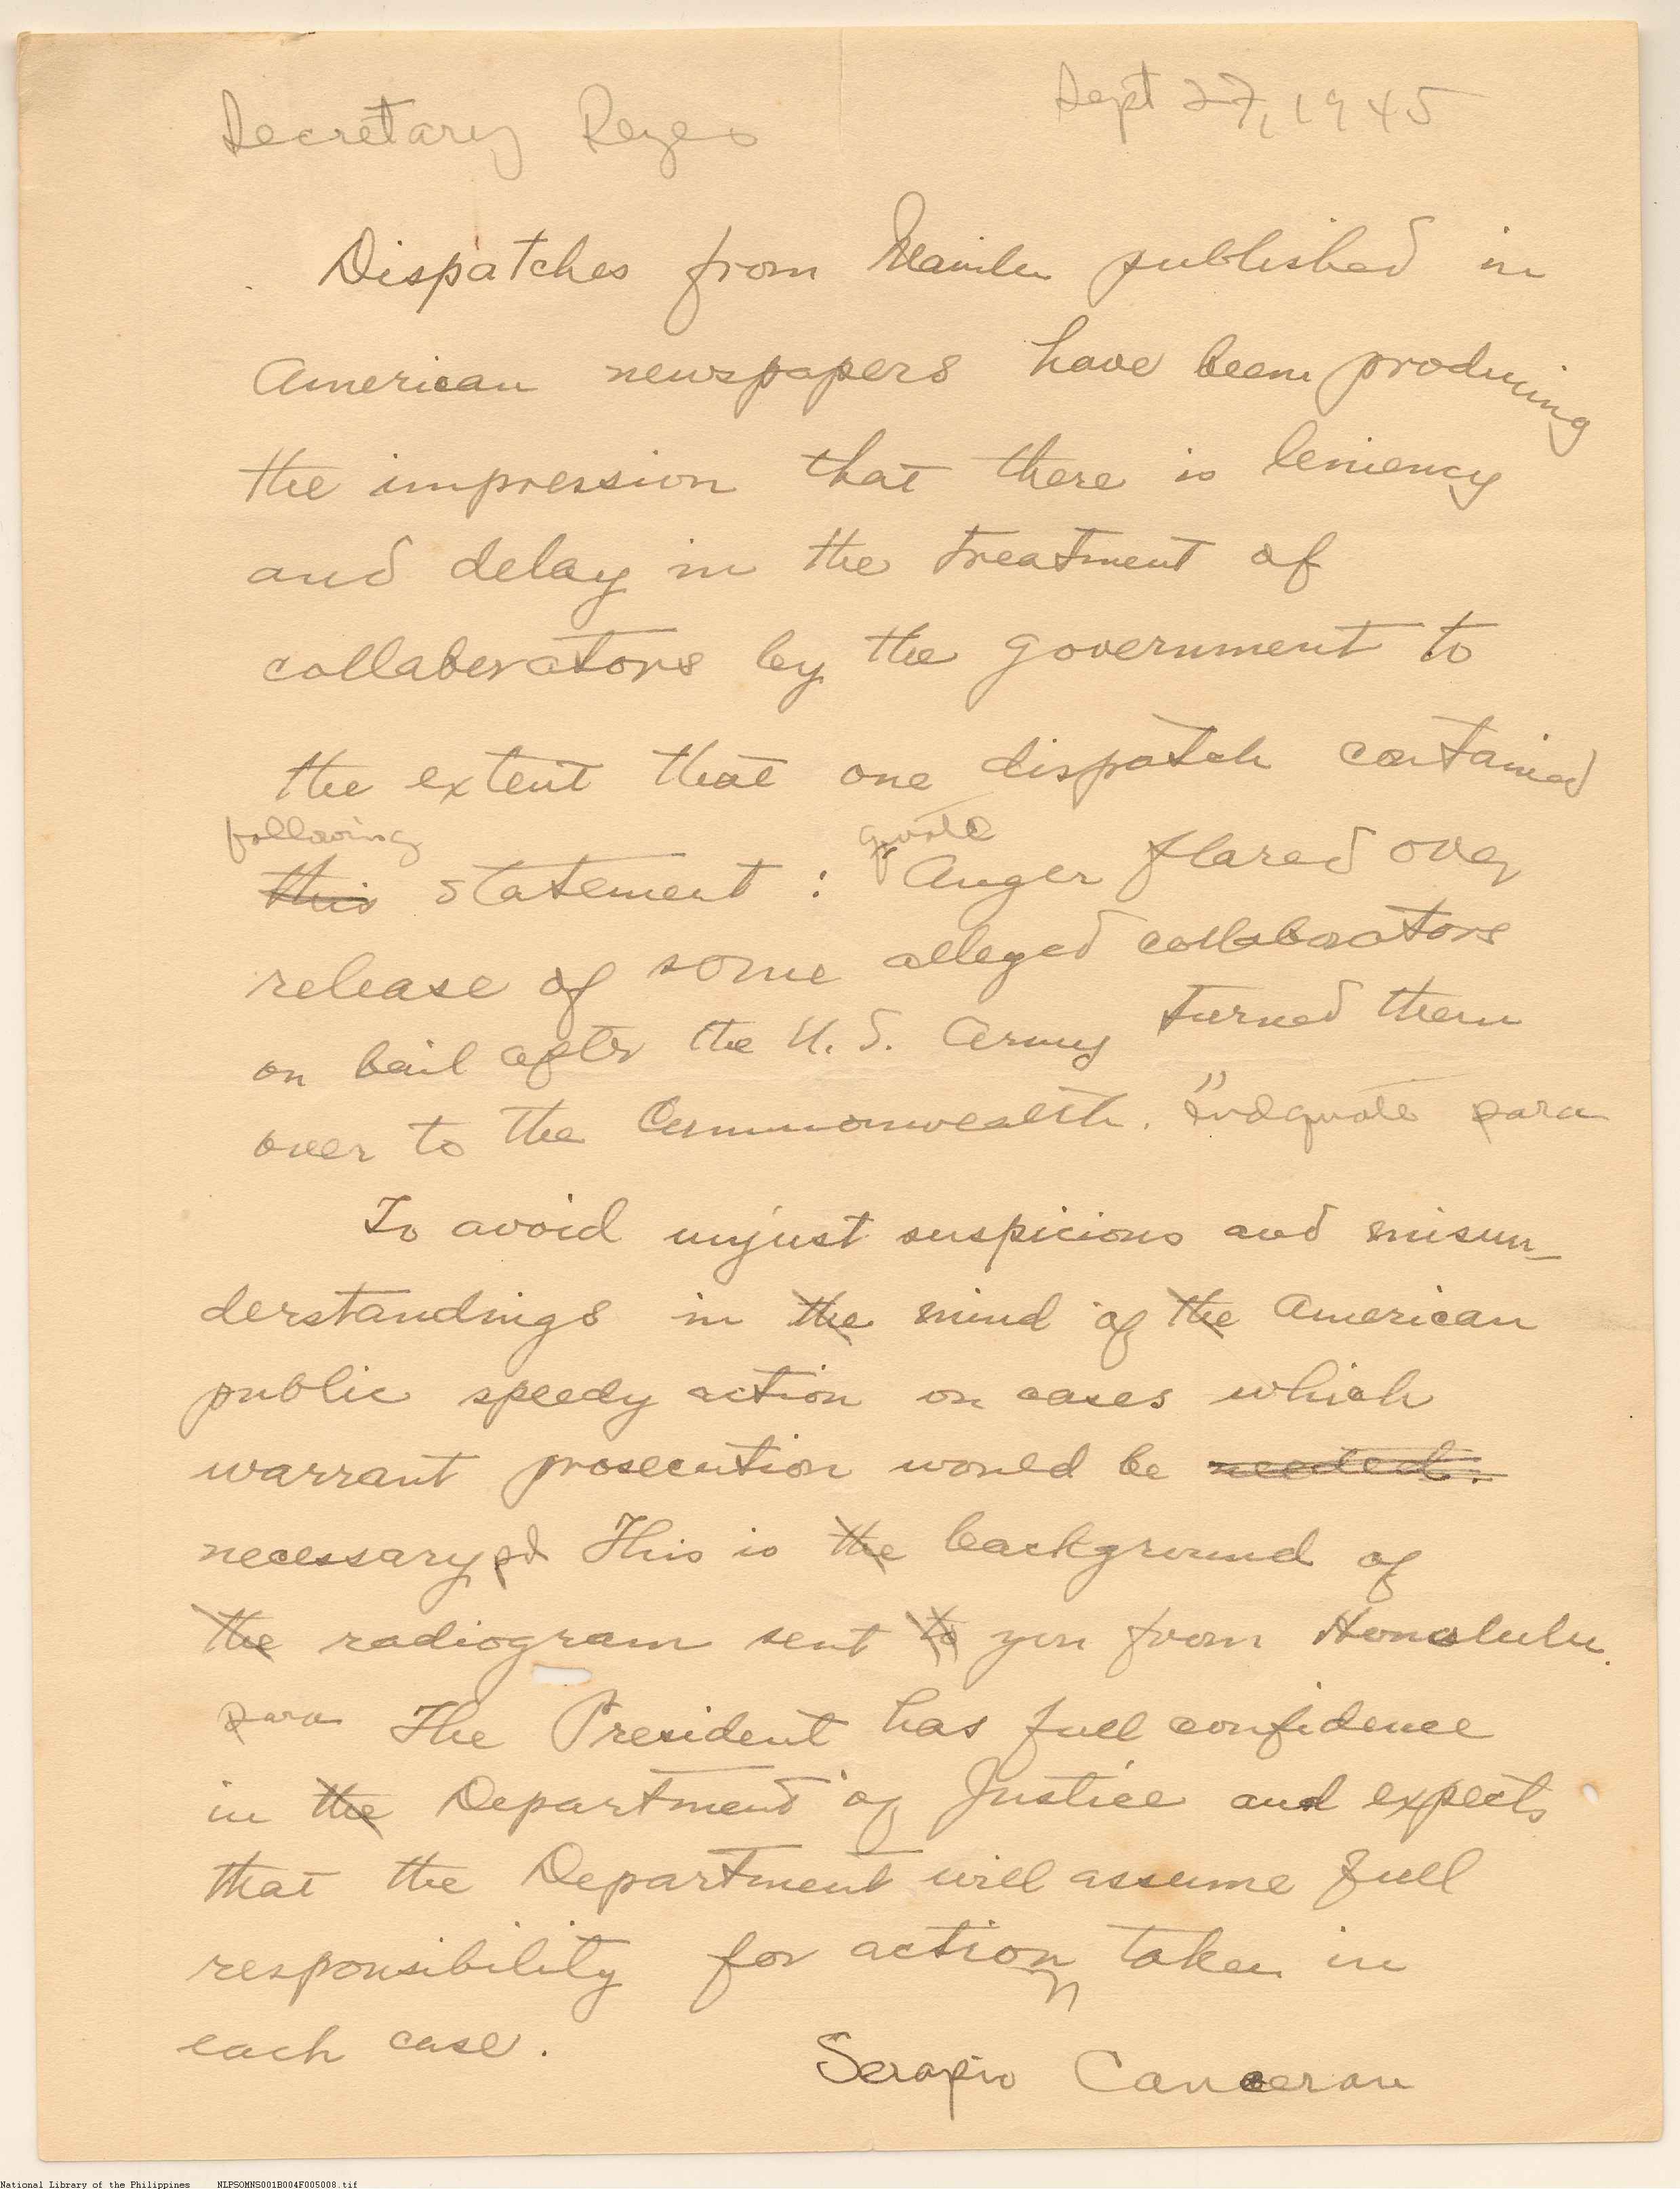 Secretary Reyes
Sept 27, 1945
Dispatches from Manila published in
American newspapers have been producing
the impression that there is leniency
and delay in the treatment of
collaborators by the government to
the extent that one dispatch contained
following quote
this statement : " Anger flared over
release of some alleged collaborators
on bail after the U. S. Army turned them
over to the Commonwealth. " Endquote para
To avoid unjust suspicions and misun-
derstandings in the mind of the American
public speedy action on cases which
warrant prosecution would be needed.
necessary pd This is the background of
the radiogram sent to you from Honolulu.
para The President has full confidence
in the Department of Justice and expects
that the Department will assume full
responsibility for action taken in
each case.
Serapio Canceran
National Library of the Philippines NLPSOMNS001B004F005008.tif